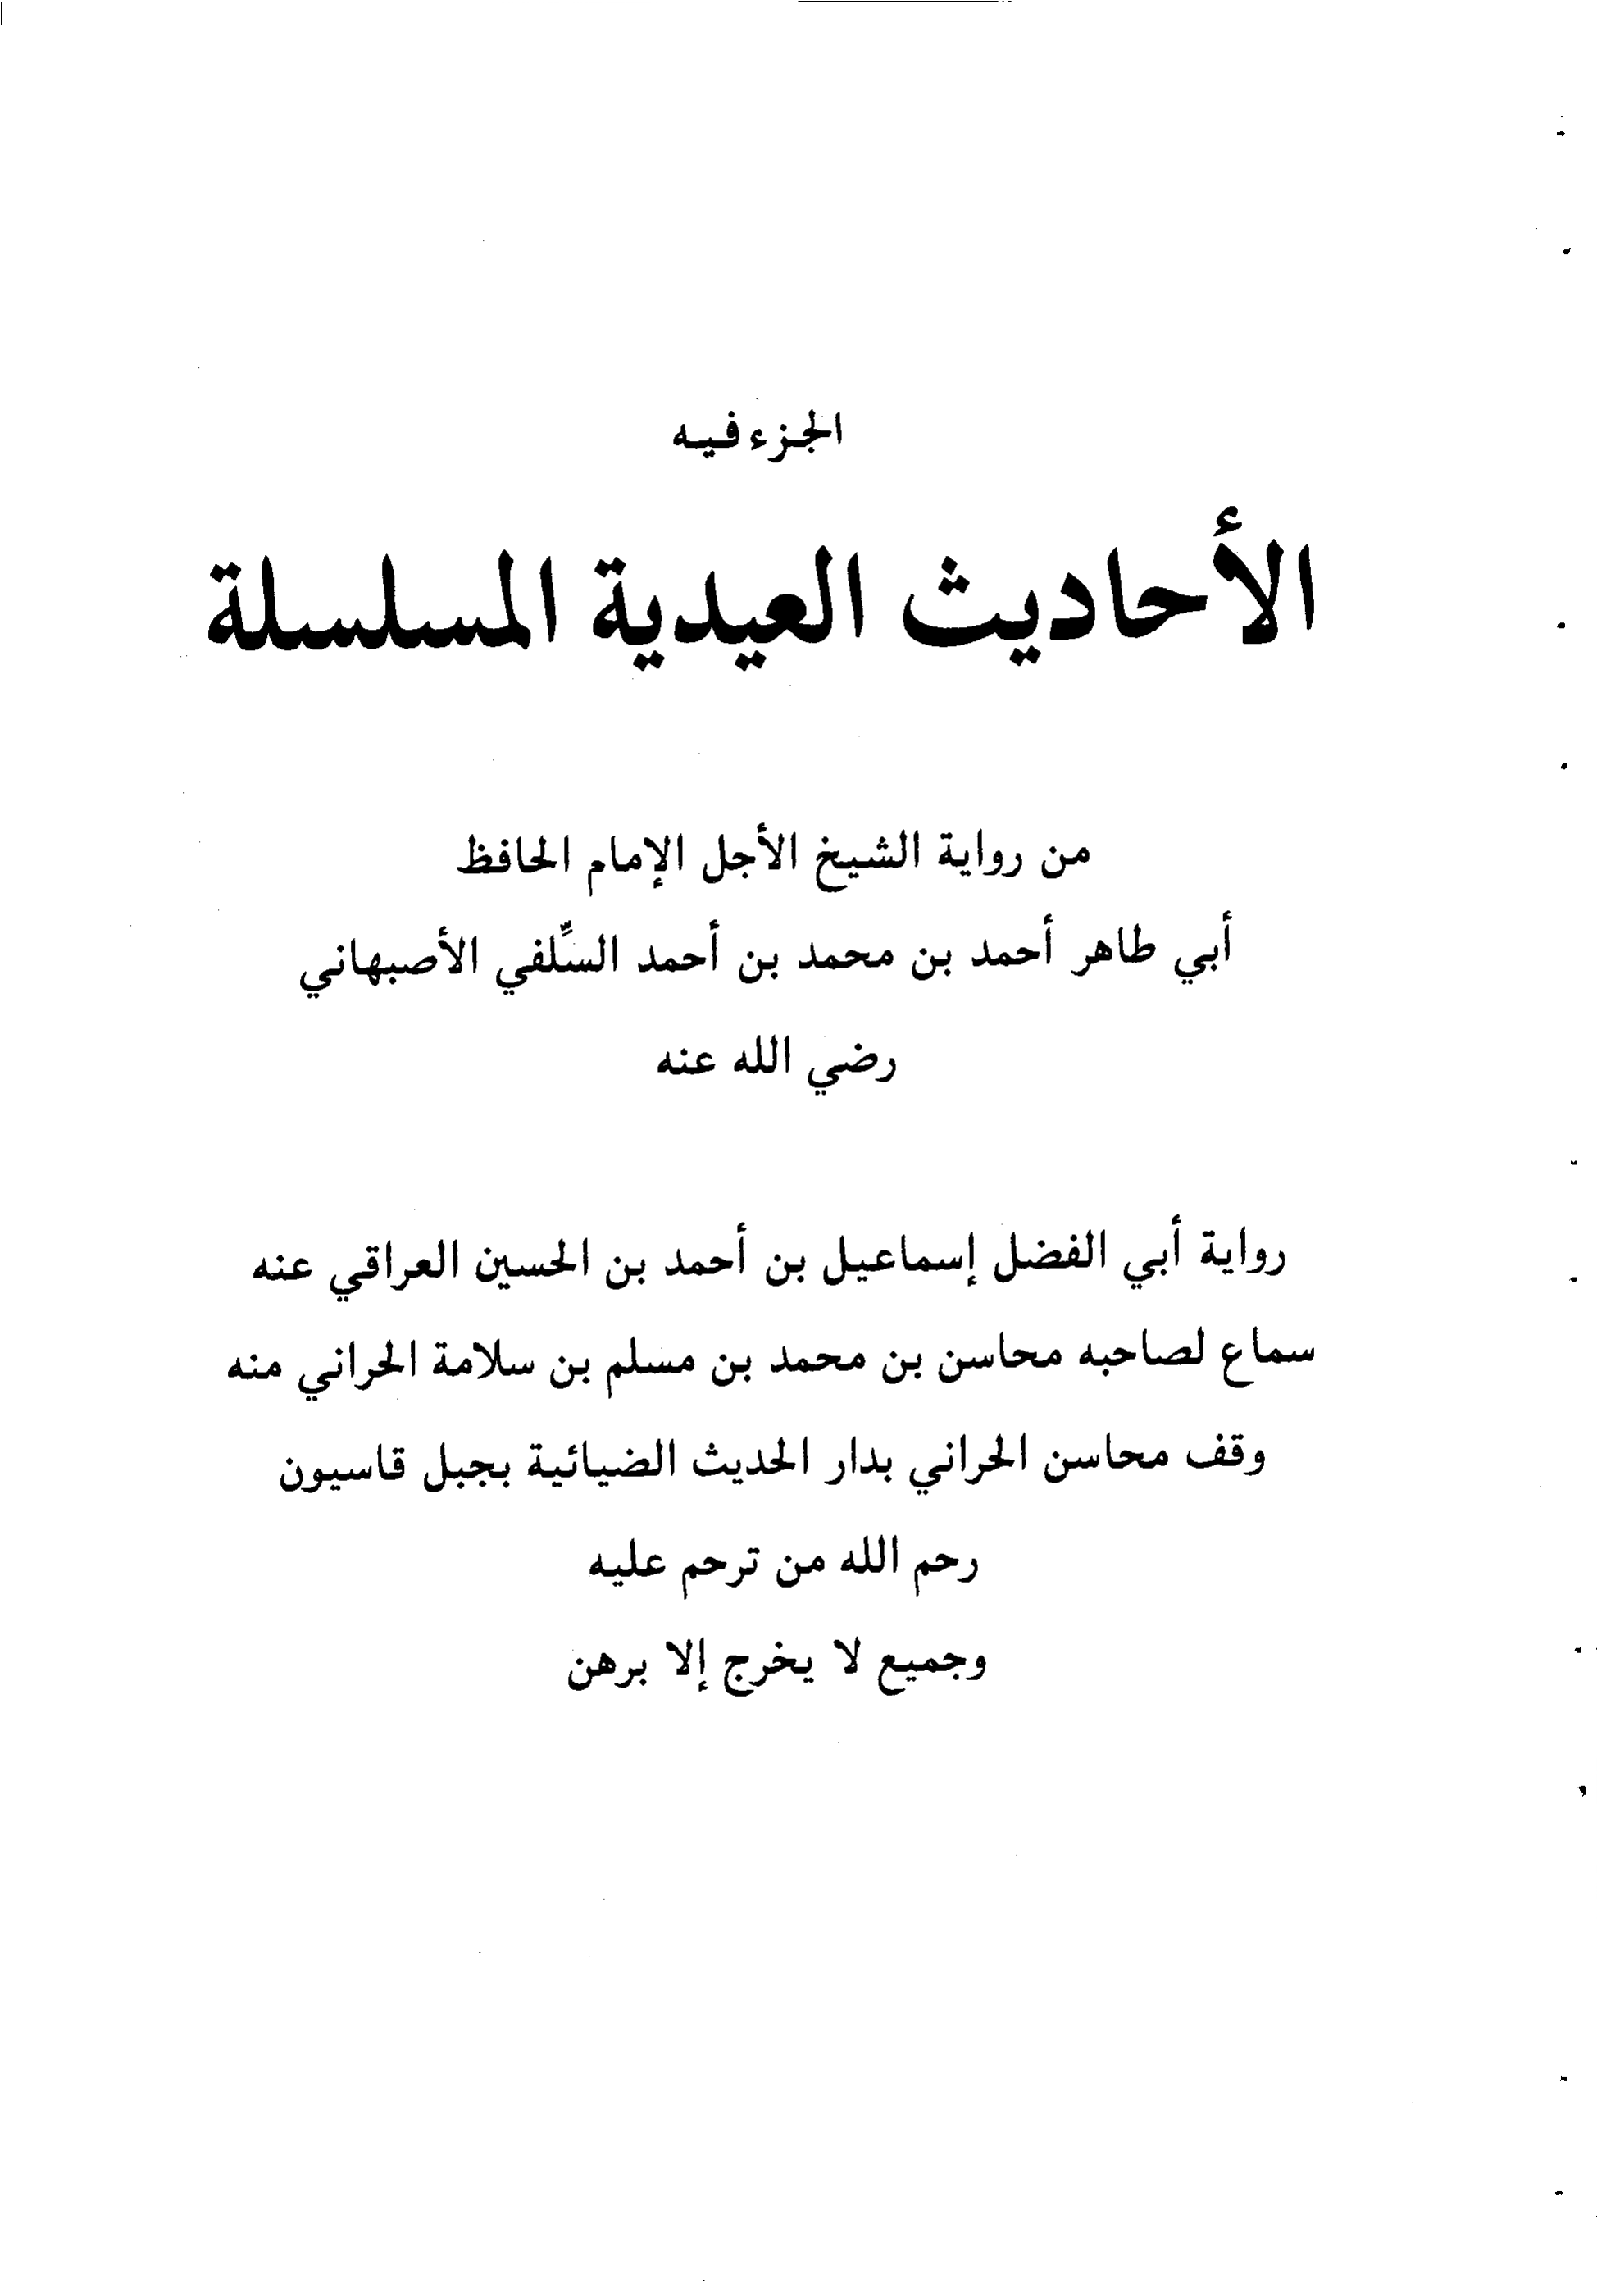 الجزء فيه
الأحاديث العيدية المسلسلة
من رواية الشيخ الأجل الإمام الحافظ
أبي طاهر أحمد بن محمد بن أحمد السِّلفي الأصبهاني
رضي الله عنه
رواية أبي الفضل إسماعيل بن أحمد بن الحسين العراقي عنه
سماع لصاحبه محاسن بن محمد بن مسلم بن سلامة الحراني منه
وقف محاسن الحراني بدار الحديث الضيائية بجبل قاسيون
رحم الله من ترحم عليه
وجميع لا يخرج إلا برهن